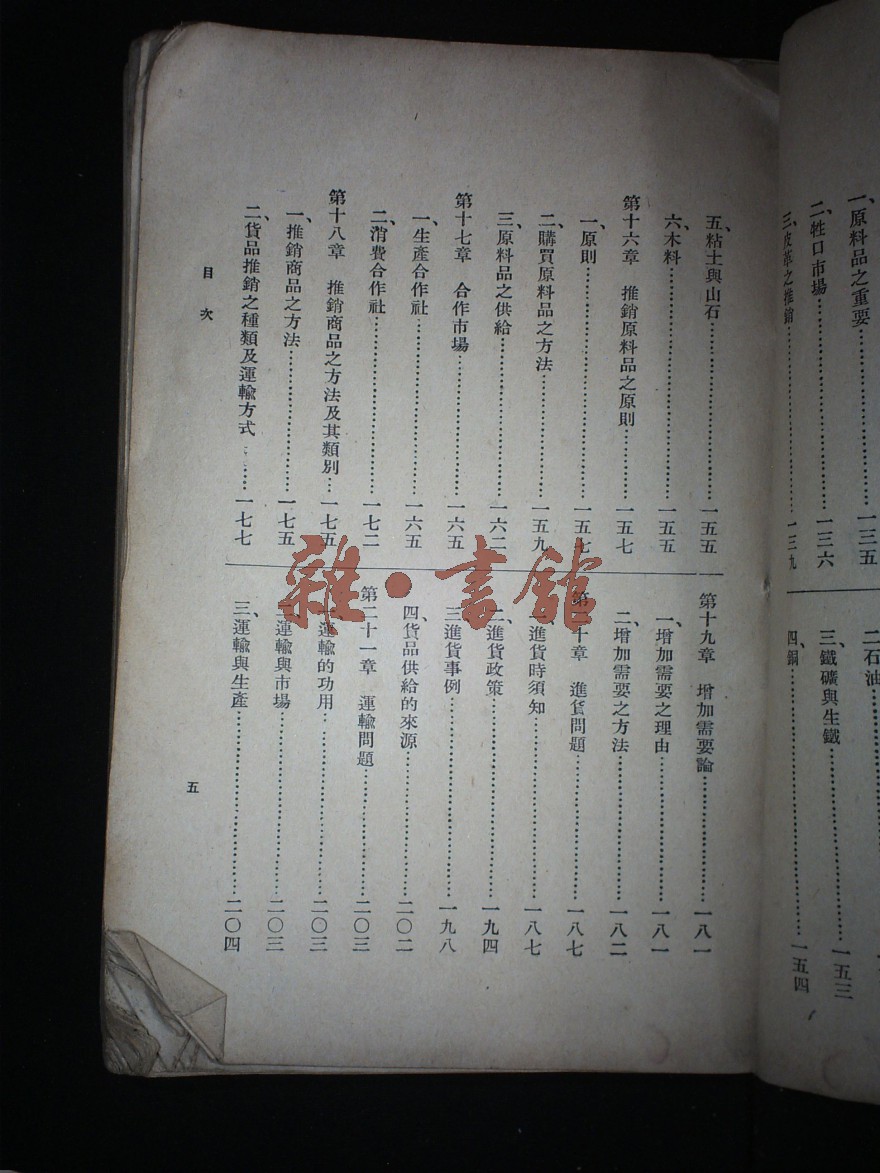 一、原料品之重要 一三五
二、牲口市場………一三六
三、皮革之推銷………一三九
二、石油………
三、鐵礦與生鐵………一五三
四、銅………一五四
五、粘土與山石………一五五
六、木料………一五五
第十六章 推銷原料品之原則………一五七
一、原則………一五七
二、購買原料品之方法………一五九
三、原料品之供給………一六二
第十七章 合作市場………一六五
一、生產合作社………一六五
二、消費合作社………一七二
第十八章 推銷商品之方法及其類別…一七五
一、推銷商品之方法………一七五
二、貨品推銷之種類及運輸方式………一七七
第十九章 增加需要論………一八一
一、增加需要之理由………一八一
二、增加需要之方法………一八二
第二十章 進貨問題………一八七
一、進貨時須知………一八七
二、進貨政策………一九四
三、進貨事例………一九八
四、貨品供給的來源………二〇二
第二十一章 運輸問題………二〇三
一、運輸的功用………二〇三
二、運輸與市場………二〇三
三、運輸與生產………二〇四
目次
五
雜·書館